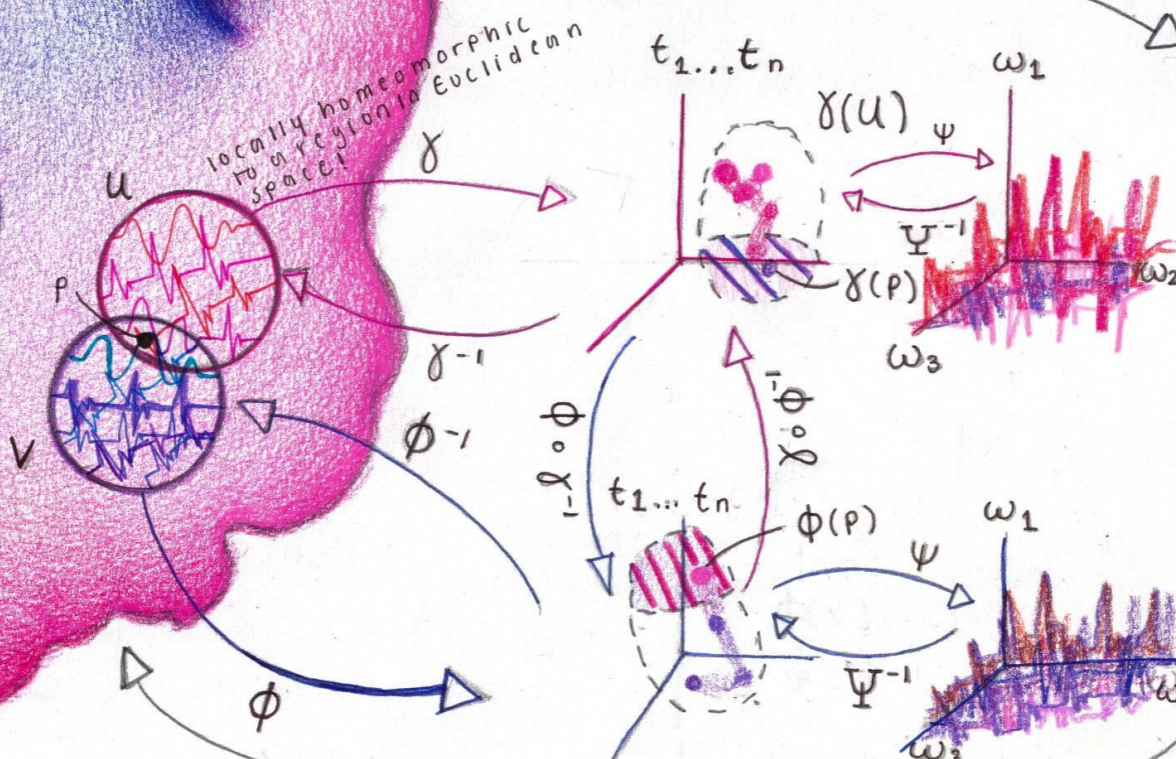 locally homeomorphic
to a region in Euclidean
space!
U
p
V
γ
γ⁻¹
ϕ⁻¹
ϕ
t₁...tₙ
γ(U)
γ(p)
ψ
Ψ⁻¹
ω₁
ω₂
ω₃
ϕ∘γ⁻¹
γ∘ϕ⁻¹
t₁...tₙ
ϕ(p)
ψ
Ψ⁻¹
ω₁